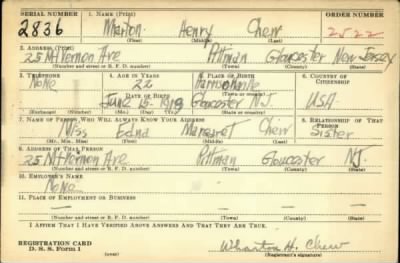 SERIAL NUMBER 1. NAME (Print) ORDER NUMBER
2836 Henry Chew 2522
(First) (Middle) (Last)
2. ADDRESS (Print)
25 Mt Vernon Ave Pitman Gloucester New Jersey
(Number and street or R. F. D. number) (Town) (County) (State)
3. TELEPHONE 4. AGE IN YEARS 5. PLACE OF BIRTH 6. COUNTRY OF CITIZENSHIP
None 22 Harrisonville
DATE OF BIRTH (Town or county)
June 15 Gloucester N.J. USA
(Mo.) (Day) (Yr.) (State or country)
7. NAME OF PERSON WHO WILL ALWAYS KNOW YOUR ADDRESS 8. RELATIONSHIP OF THAT PERSON
Miss Edna Margaret Chew Sister
(Mr., Mrs., Miss) (First) (Middle) (Last)
9. ADDRESS OF THAT PERSON
25 Mt Vernon Ave Pitman Gloucester N.J.
(Number and street or R. F. D. number) (Town) (County) (State)
10. EMPLOYER'S NAME
None
11. PLACE OF EMPLOYMENT OR BUSINESS
(Number and street or R. F. D. number) (Town) (County) (State)
I AFFIRM THAT I HAVE VERIFIED ABOVE ANSWERS AND THAT THEY ARE TRUE.
REGISTRATION CARD
D. S. S. Form 1
Wharton H. Chew
(Registrant's signature)